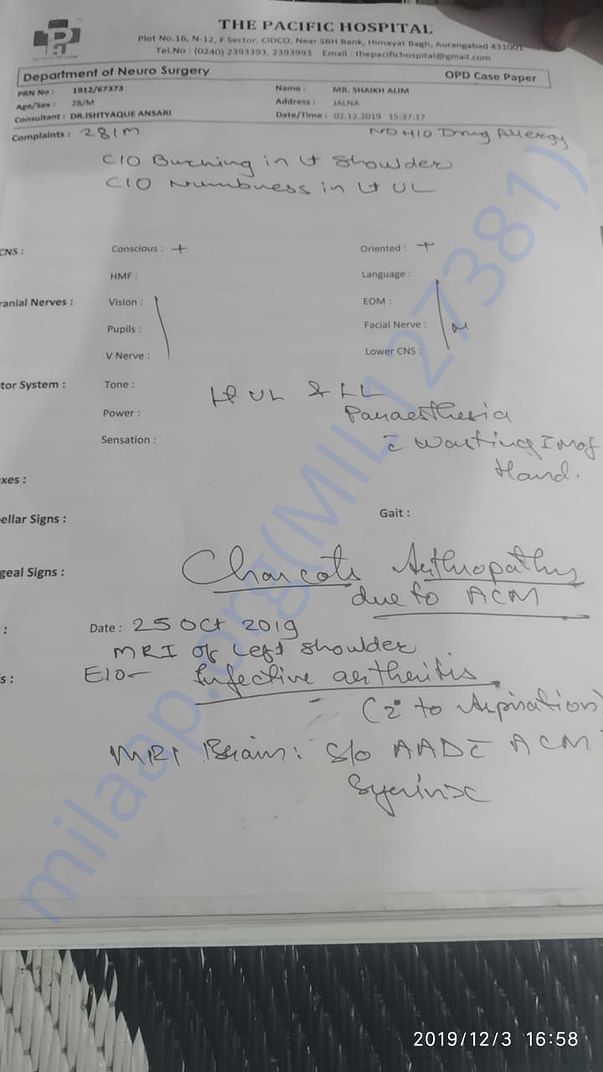 THE PACIFIC HOSPITAL
Plot No.16, N-12, F Sector, CIDCO, Near SBH Bank, Himayat Bagh, Aurangabad 431001
Tel.No : (0240) 2393393, 2393993 Email : thepacifichospital@gmail.com
Department of Neuro Surgery OPD Case Paper
PRN No : 1912/67373 Name : MR. SHAIKH ALIM
Age/Sex : 28/M Address : JALNA
Consultant : DR.ISHTYAQUE ANSARI Date/Time : 02.12.2019 15:37:17
Complaints : 28/M NO H/O Drug Allergy
C/O Burning in Lt Shoulder
C/O Numbness in Lt UL
CNS : Conscious : + Oriented : +
HMF : Language :
ranial Nerves : Vision : EOM :
Pupils : Facial Nerve :
V Nerve : Lower CNS :
tor System : Tone : UL & LL
Power : Paraesthesia
Sensation : c wasting of
Hand.
xes :
ellar Signs : Gait :
geal Signs : Charcots Arthropathy
due to ACM
: Date : 25 Oct 2019
MRI of Left Shoulder
s : E/O- Infective arthritis.
(2° to Aspiration)
MRI Brain: S/o AAD c ACM
Syrinx
milaap.org(MIL127381)
2019/12/3 16:58